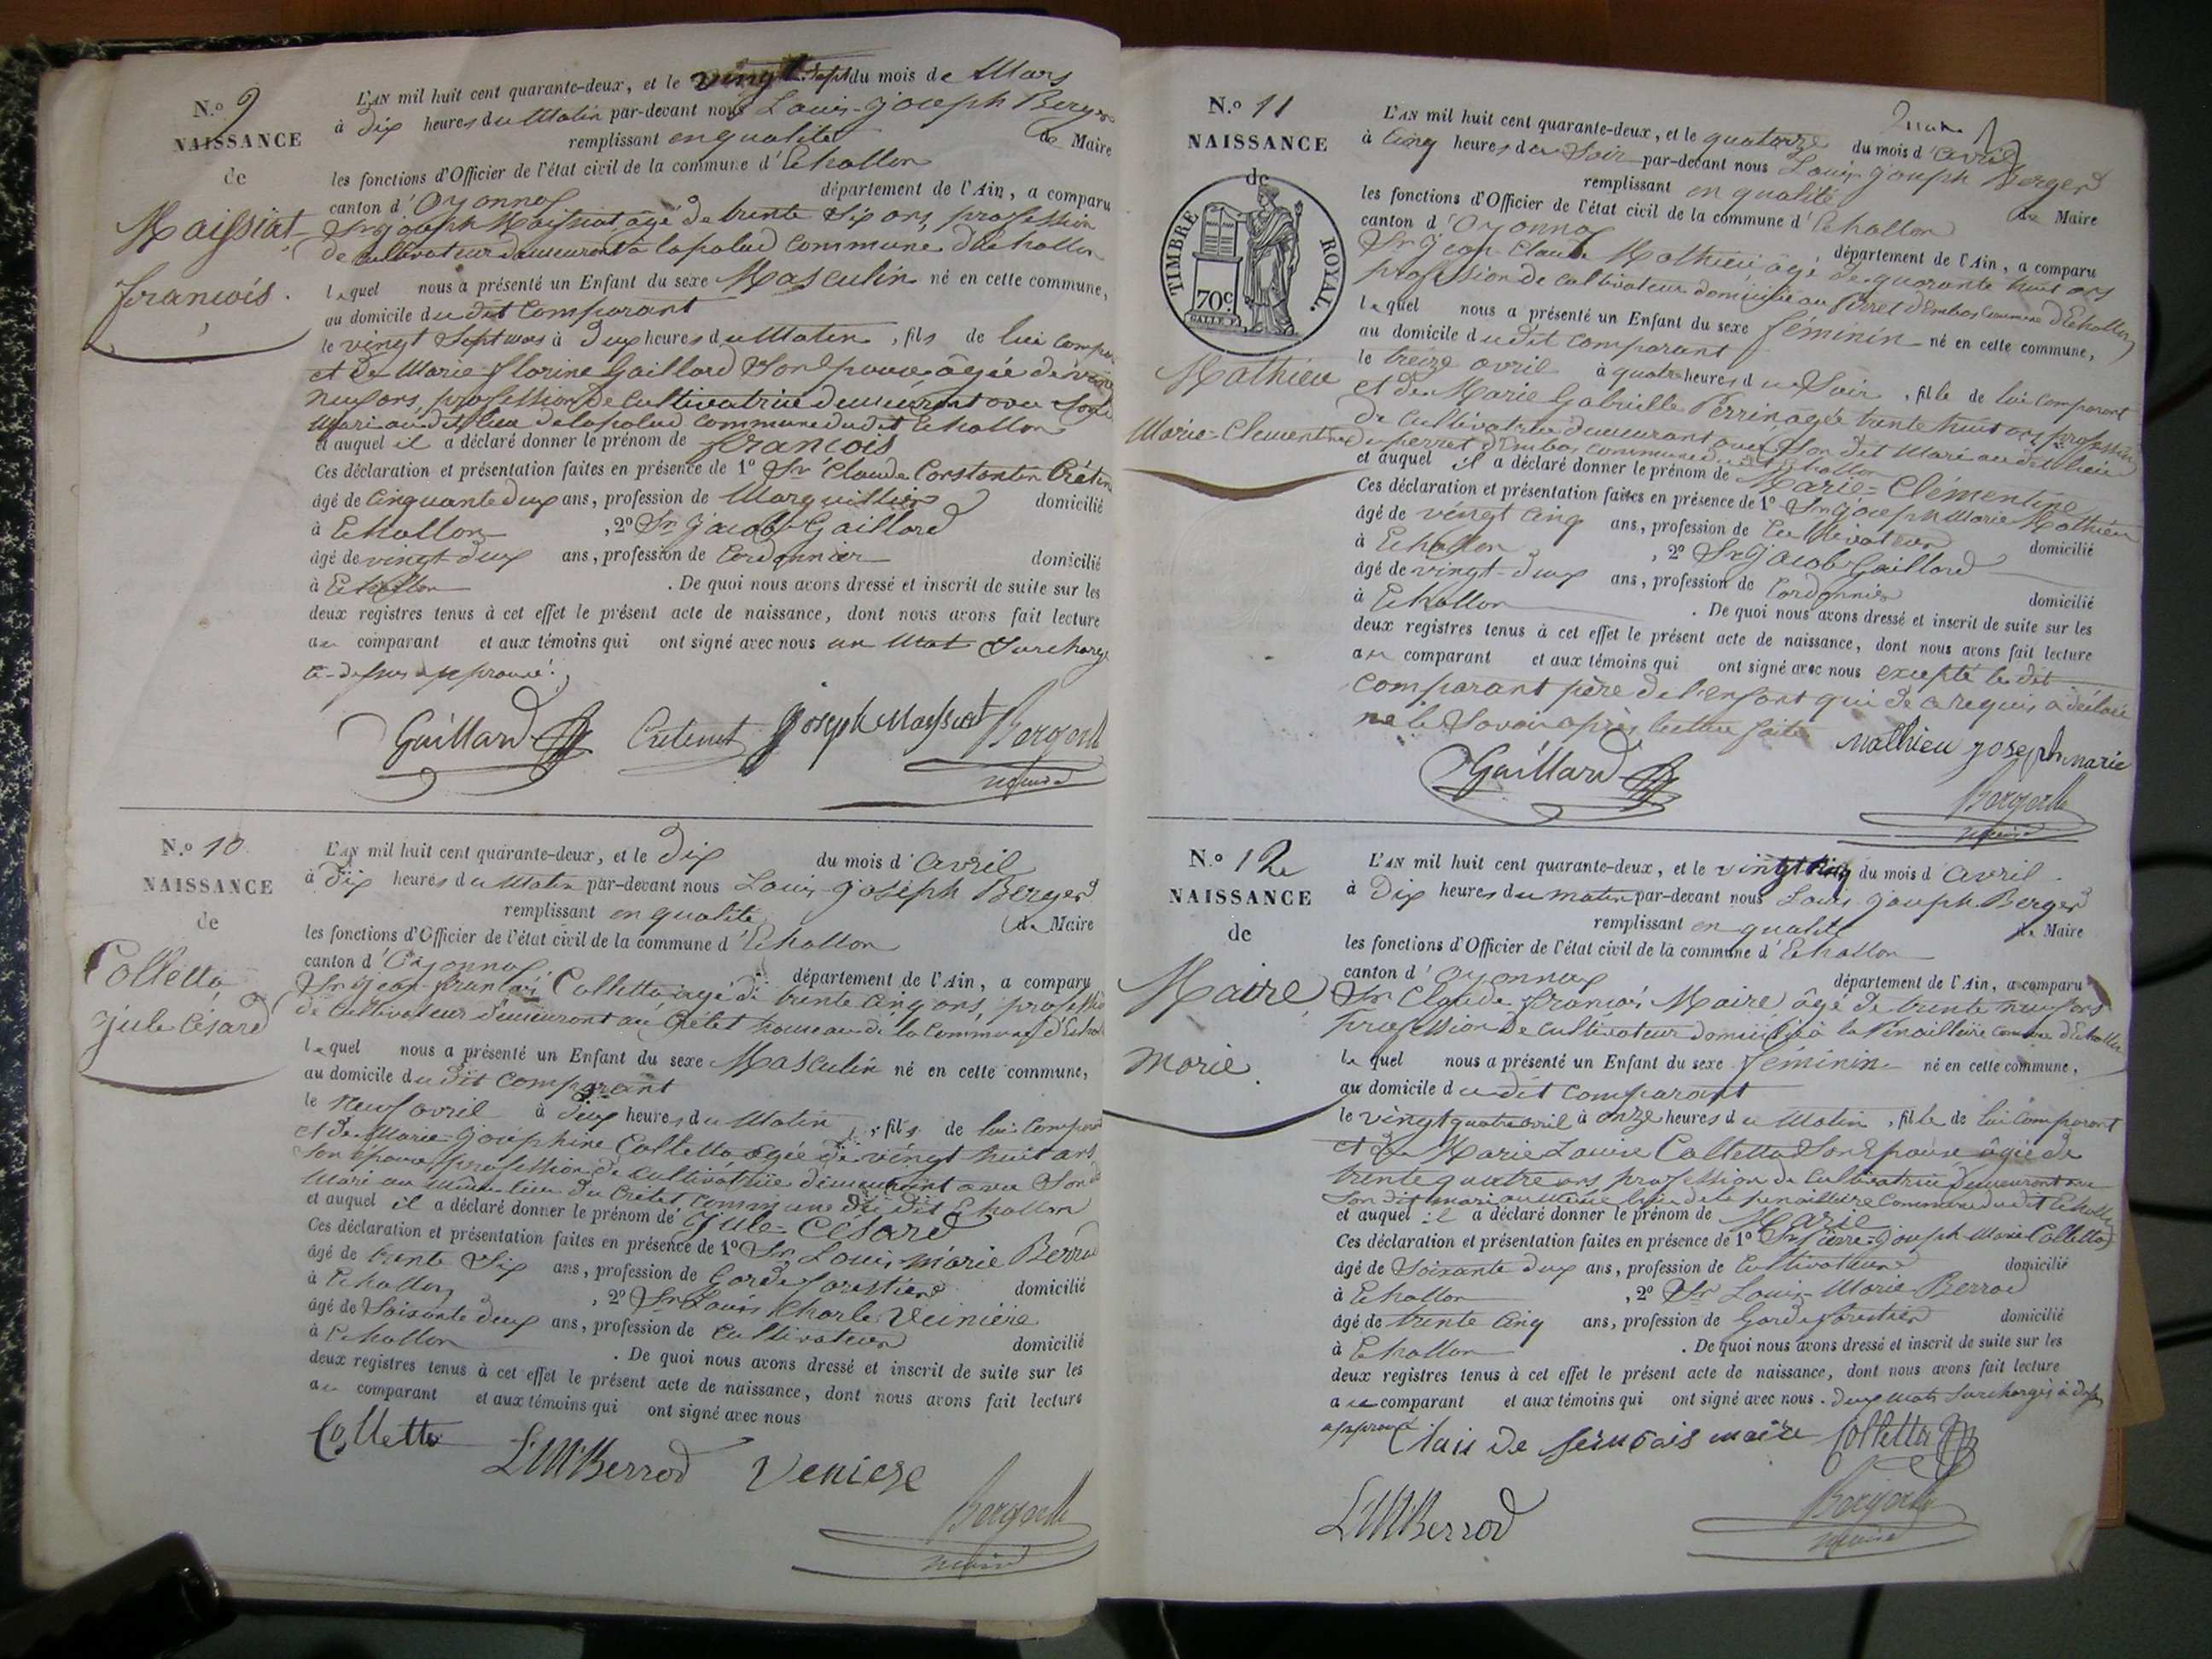 N.o 9
NAISSANCE
de
Maissiat
francois.
L'AN mil huit cent quarante-deux, et le vingt sept du mois de Mars
à dix heures du Matin par-devant nous Louis-joseph Berger
remplissant en qualité de Maire
les fonctions d'Officier de l'état civil de la commune d'Echallon
canton d'Oyonnax département de l'Ain, a comparu
Sr joseph Maissiat âgé de trente six ans, profession
de cultivateur demeurant à lapalud commune d'Echallon
lequel nous a présenté un Enfant du sexe Masculin né en cette commune,
au domicile dudit comparant
le vingt Sept mars à deux heures du Matin, fils de lui compa
et de Marie florine Gaillard Son Epouse âgée de vingt
neuf ans, profession de Cultivatrice demeurant avec Son
Mari au dit lieu de lapalud commune dudit Echallon
et auquel il a déclaré donner le prénom de francois
Ces déclaration et présentation faites en présence de 1o Sr Claude Constantin Crétin
âgé de Cinquante deux ans, profession de Marguillier domicilié
à Echallon, 2o Sr jacob Gaillard
âgé de vingt deux ans, profession de Cordonnier domicilié
à Echallon. De quoi nous avons dressé et inscrit de suite sur les
deux registres tenus à cet effet le présent acte de naissance, dont nous avons fait lecture
au comparant et aux témoins qui ont signé avec nous un Mot Surchargé
ci-dessus approuvé.
Gaillard Cretenet joseph Maissiat Berger
maire
N.o 10
NAISSANCE
de
Colletta
jule Césard
L'AN mil huit cent quarante-deux, et le dix du mois d'avril
à dix heures du Matin par-devant nous Louis-joseph Berger
remplissant en qualité de Maire
les fonctions d'Officier de l'état civil de la commune d'Echallon
canton d'Oyonnax département de l'Ain, a comparu
Sr jean francois Colletta agé de trente cinq ans, profession
de cultivateur demeurant au Crétet hameau de la Commune d'Echall
lequel nous a présenté un Enfant du sexe Masculin né en cette commune,
au domicile dudit comparant
le neuf avril à deux heures du Matin, fils de lui Comparant
et de Marie-joséphine Colletta agée de vingt huit ans
son épouse profession de cultivatrice demeurant avec Son dit
Mari au même lieu du Crétet commune du dit Echallon
et auquel il a déclaré donner le prénom de jule-Césard
Ces déclaration et présentation faites en présence de 1o Sr Louis marie Berrod
âgé de trente Six ans, profession de Garde forestier domicilié
à Echallon, 2o Sr Louis Charle Veinière
âgé de Soixante deux ans, profession de Cultivateur domicilié
à Echallon. De quoi nous avons dressé et inscrit de suite sur les
deux registres tenus à cet effet le présent acte de naissance, dont nous avons fait lecture
au comparant et aux témoins qui ont signé avec nous
Colletta LMBerrod Veniere
Berger
maire
N.o 11
NAISSANCE
de
TIMBRE ROYAL.
70c
Mathieu
Marie-Clementine
L'AN mil huit cent quarante-deux, et le quatorze du mois d'avril
à Cinq heures du Soir par-devant nous Louis joseph Berger
remplissant en qualité de Maire
les fonctions d'Officier de l'état civil de la commune d'Echallon
canton d'Oyonnax département de l'Ain, a comparu
Sr jean Claude Mathieu âgé de quarante huit ans
profession de cultivateur domicilié au perret d'Embas Commune d'Echallon
lequel nous a présenté un Enfant du sexe féminin né en cette commune,
au domicile dudit comparant
le treize avril à quatre heures du Soir, fille de lui Comparant
et de Marie Gabrielle Perrin agée trente huit ans profession
de Cultivatrice demeurant avec Son dit Mari au dit lieu
du perret d'Embas commune dudit Echallon
et auquel il a déclaré donner le prénom de Marie-Clémentine
Ces déclaration et présentation faites en présence de 1o Sr joseph Marie Mathieu
âgé de vingt cinq ans, profession de Cultivateur domicilié
à Echallon, 2o Sr jacob Gaillard
âgé de vingt-deux ans, profession de Cordonnier domicilié
à Echallon. De quoi nous avons dressé et inscrit de suite sur les
deux registres tenus à cet effet le présent acte de naissance, dont nous avons fait lecture
au comparant et aux témoins qui ont signé avec nous excepté le dit
comparant père de l'enfant qui de ce requis a déclaré
ne le Savoir après lecture faite
Mathieu joseph marie
Gaillard
Berger
maire
N.o 12
NAISSANCE
de
Maire
Marie.
L'AN mil huit cent quarante-deux, et le vingt cinq du mois d'avril
à Dix heures du matin par-devant nous Louis joseph Berger
remplissant en qualité de Maire
les fonctions d'Officier de l'état civil de la commune d'Echallon
canton d'Oyonnax département de l'Ain, a comparu
Sr Claude francois Maire âgé de trente neuf ans
Profession de cultivateur domicilié à la Penaillire Commune d'Echallon
lequel nous a présenté un Enfant du sexe féminin né en cette commune,
au domicile dudit comparant
le vingt quatre avril à onze heures du Matin, fille de lui Comparant
et de Marie Louise Colletta Son Epouse âgée de
trente quatre ans profession de Cultivatrice demeurant avec
Son dit mari au même lieu de la penaillire Commune dudit Echallon
et auquel il a déclaré donner le prénom de Marie
Ces déclaration et présentation faites en présence de 1o Sr Pierre-joseph Marie Colletta
âgé de Soixante deux ans, profession de Cultivateur domicilié
à Echallon, 2o Sr Louis-Marie Berrod
âgé de trente cinq ans, profession de Garde forestier domicilié
à Echallon. De quoi nous avons dressé et inscrit de suite sur les
deux registres tenus à cet effet le présent acte de naissance, dont nous avons fait lecture
au comparant et aux témoins qui ont signé avec nous. deux Mots Surchargés ci dessus
approuvé
maire Colletta
LMBerrod Berger
maire